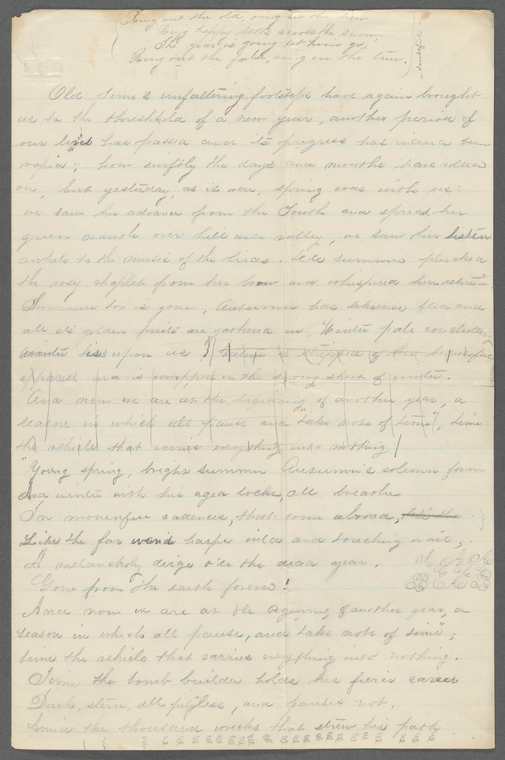 Ring out the old, ring in the new
Ring happy bells across the snow,
The year is going let him go,
Ring out the false, ring in the true.
Old Time's unfaltering footsteps have again brought
us to the threshhold of a new year, another period of
our lives has passed and its progress has indeed been
rapid; how swiftly the days and months have rolled
on, but yesterday, as it were, spring was with us:
we saw her advance from the South and spread her
green mantle over hill and valley, we saw her listen
awhile to the music of the birds. Till summer plucked
the rosy chaplet from her brow and whispered her retire
Summer too is gone, Autumn has likewise fled and
all its golden fruits are gathered in, Winter pale
winter is upon us nature is stripped of her beautiful
apparel and is wrapped in the snowy sheet of winter.
And now we are at the beginning of another year, a
season in which all pause and "take note of time", time
the vehicle that carries everything into nothing
"Young spring, bright summer Autumn's solemn form
And winter with his aged locks, all breathe
In mournful cadences, that come abroad, like the
Like the far wind harps wild and touching wail,
A melancholy dirge o'er the dead year.
Gone from the earth forever!
And now we are at the beginning of another year, a
season in which all pause, and "take note of time";
time the vehicle that carries everything into nothing.
Time the tomb builder holds his fierce career
Dark, stern, all pitiless, and pauses not,
Amid the thousand wrecks that strew his path